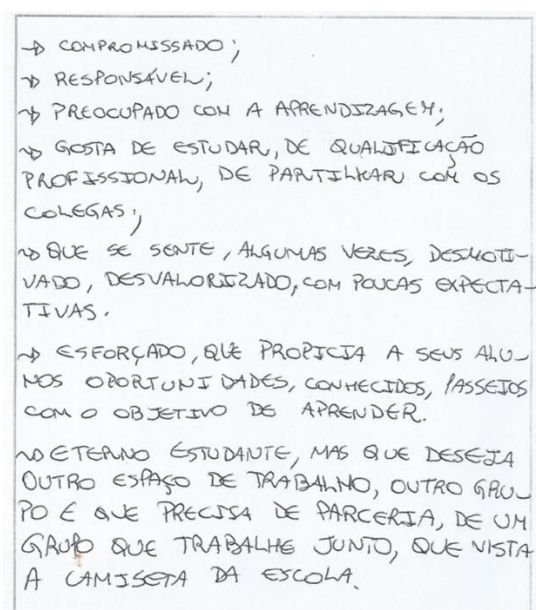 → COMPROMISSADO;
→ RESPONSÁVEL;
→ PREOCUPADO COM A APRENDIZAGEM;
→ GOSTA DE ESTUDAR, DE QUALIFICAÇÃO
PROFISSIONAL, DE PARTILHAR COM OS
COLEGAS;
→ QUE SE SENTE, ALGUMAS VEZES, DESMOTI-
VADO, DESVALORIZADO, COM POUCAS EXPECTA-
TIVAS.
→ ESFORÇADO, QUE PROPICIA A SEUS ALU-
NOS OPORTUNIDADES, CONHECIDOS, PASSEIOS
COM O OBJETIVO DE APRENDER.
→ ETERNO ESTUDANTE, MAS QUE DESEJA
OUTRO ESPAÇO DE TRABALHO, OUTRO GRU-
PO E QUE PRECISA DE PARCERIA, DE UM
GRUPO QUE TRABALHE JUNTO, QUE VISTA
A CAMISETA DA ESCOLA.